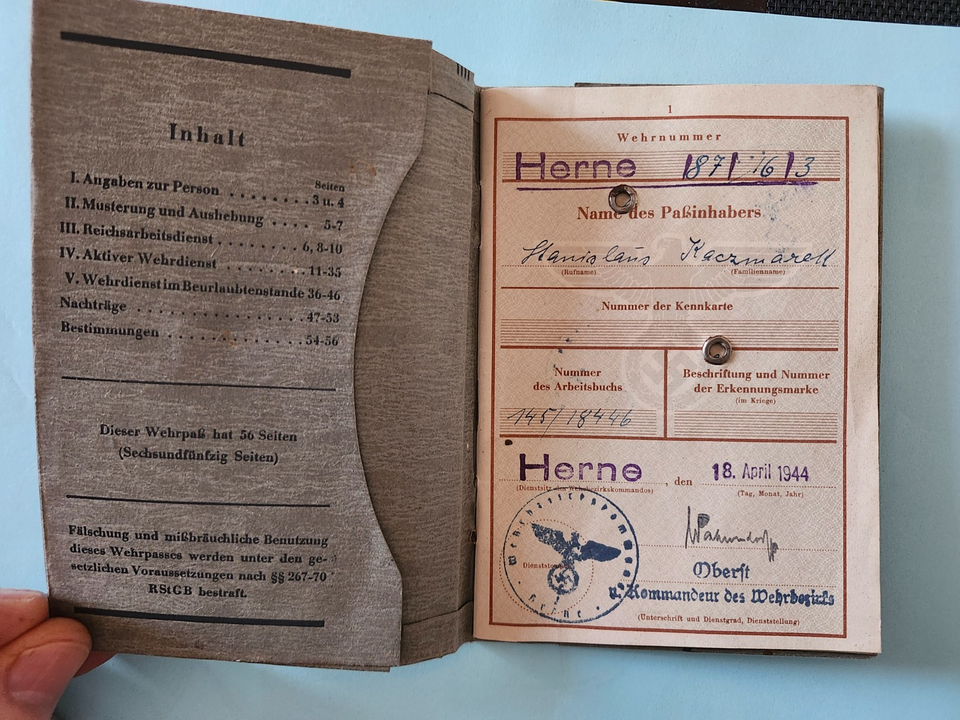 Inhalt
Seiten
I. Angaben zur Person . . . . . . . 3 u. 4
II. Musterung und Aushebung . . . . 5-7
III. Reichsarbeitsdienst . . . . . . . . 6, 8-10
IV. Aktiver Wehrdienst . . . . . . . . 11-35
V. Wehrdienst im Beurlaubtenstande 36-46
Nachträge . . . . . . . . . . . . . 47-53
Bestimmungen . . . . . . . . . . . 54-56
Dieser Wehrpaß hat 56 Seiten
(Sechsundfünfzig Seiten)
Fälschung und mißbräuchliche Benutzung
dieses Wehrpasses werden unter den ge-
setzlichen Voraussetzungen nach §§ 267-70
RStGB bestraft.
1
Wehrnummer
Herne 187/16/3
Name des Paßinhabers
Stanislaus Kaczmarek
(Rufname) (Familienname)
Nummer der Kennkarte
Nummer
des Arbeitsbuchs
145/18446
Beschriftung und Nummer
der Erkennungsmarke
(im Kriege)
Herne, den 18. April 1944
(Dienstsitz des Wehrbezirkskommandos) (Tag, Monat, Jahr)
Oberst
u. Kommandeur des Wehrbezirks
(Unterschrift und Dienstgrad, Dienststellung)
Herne